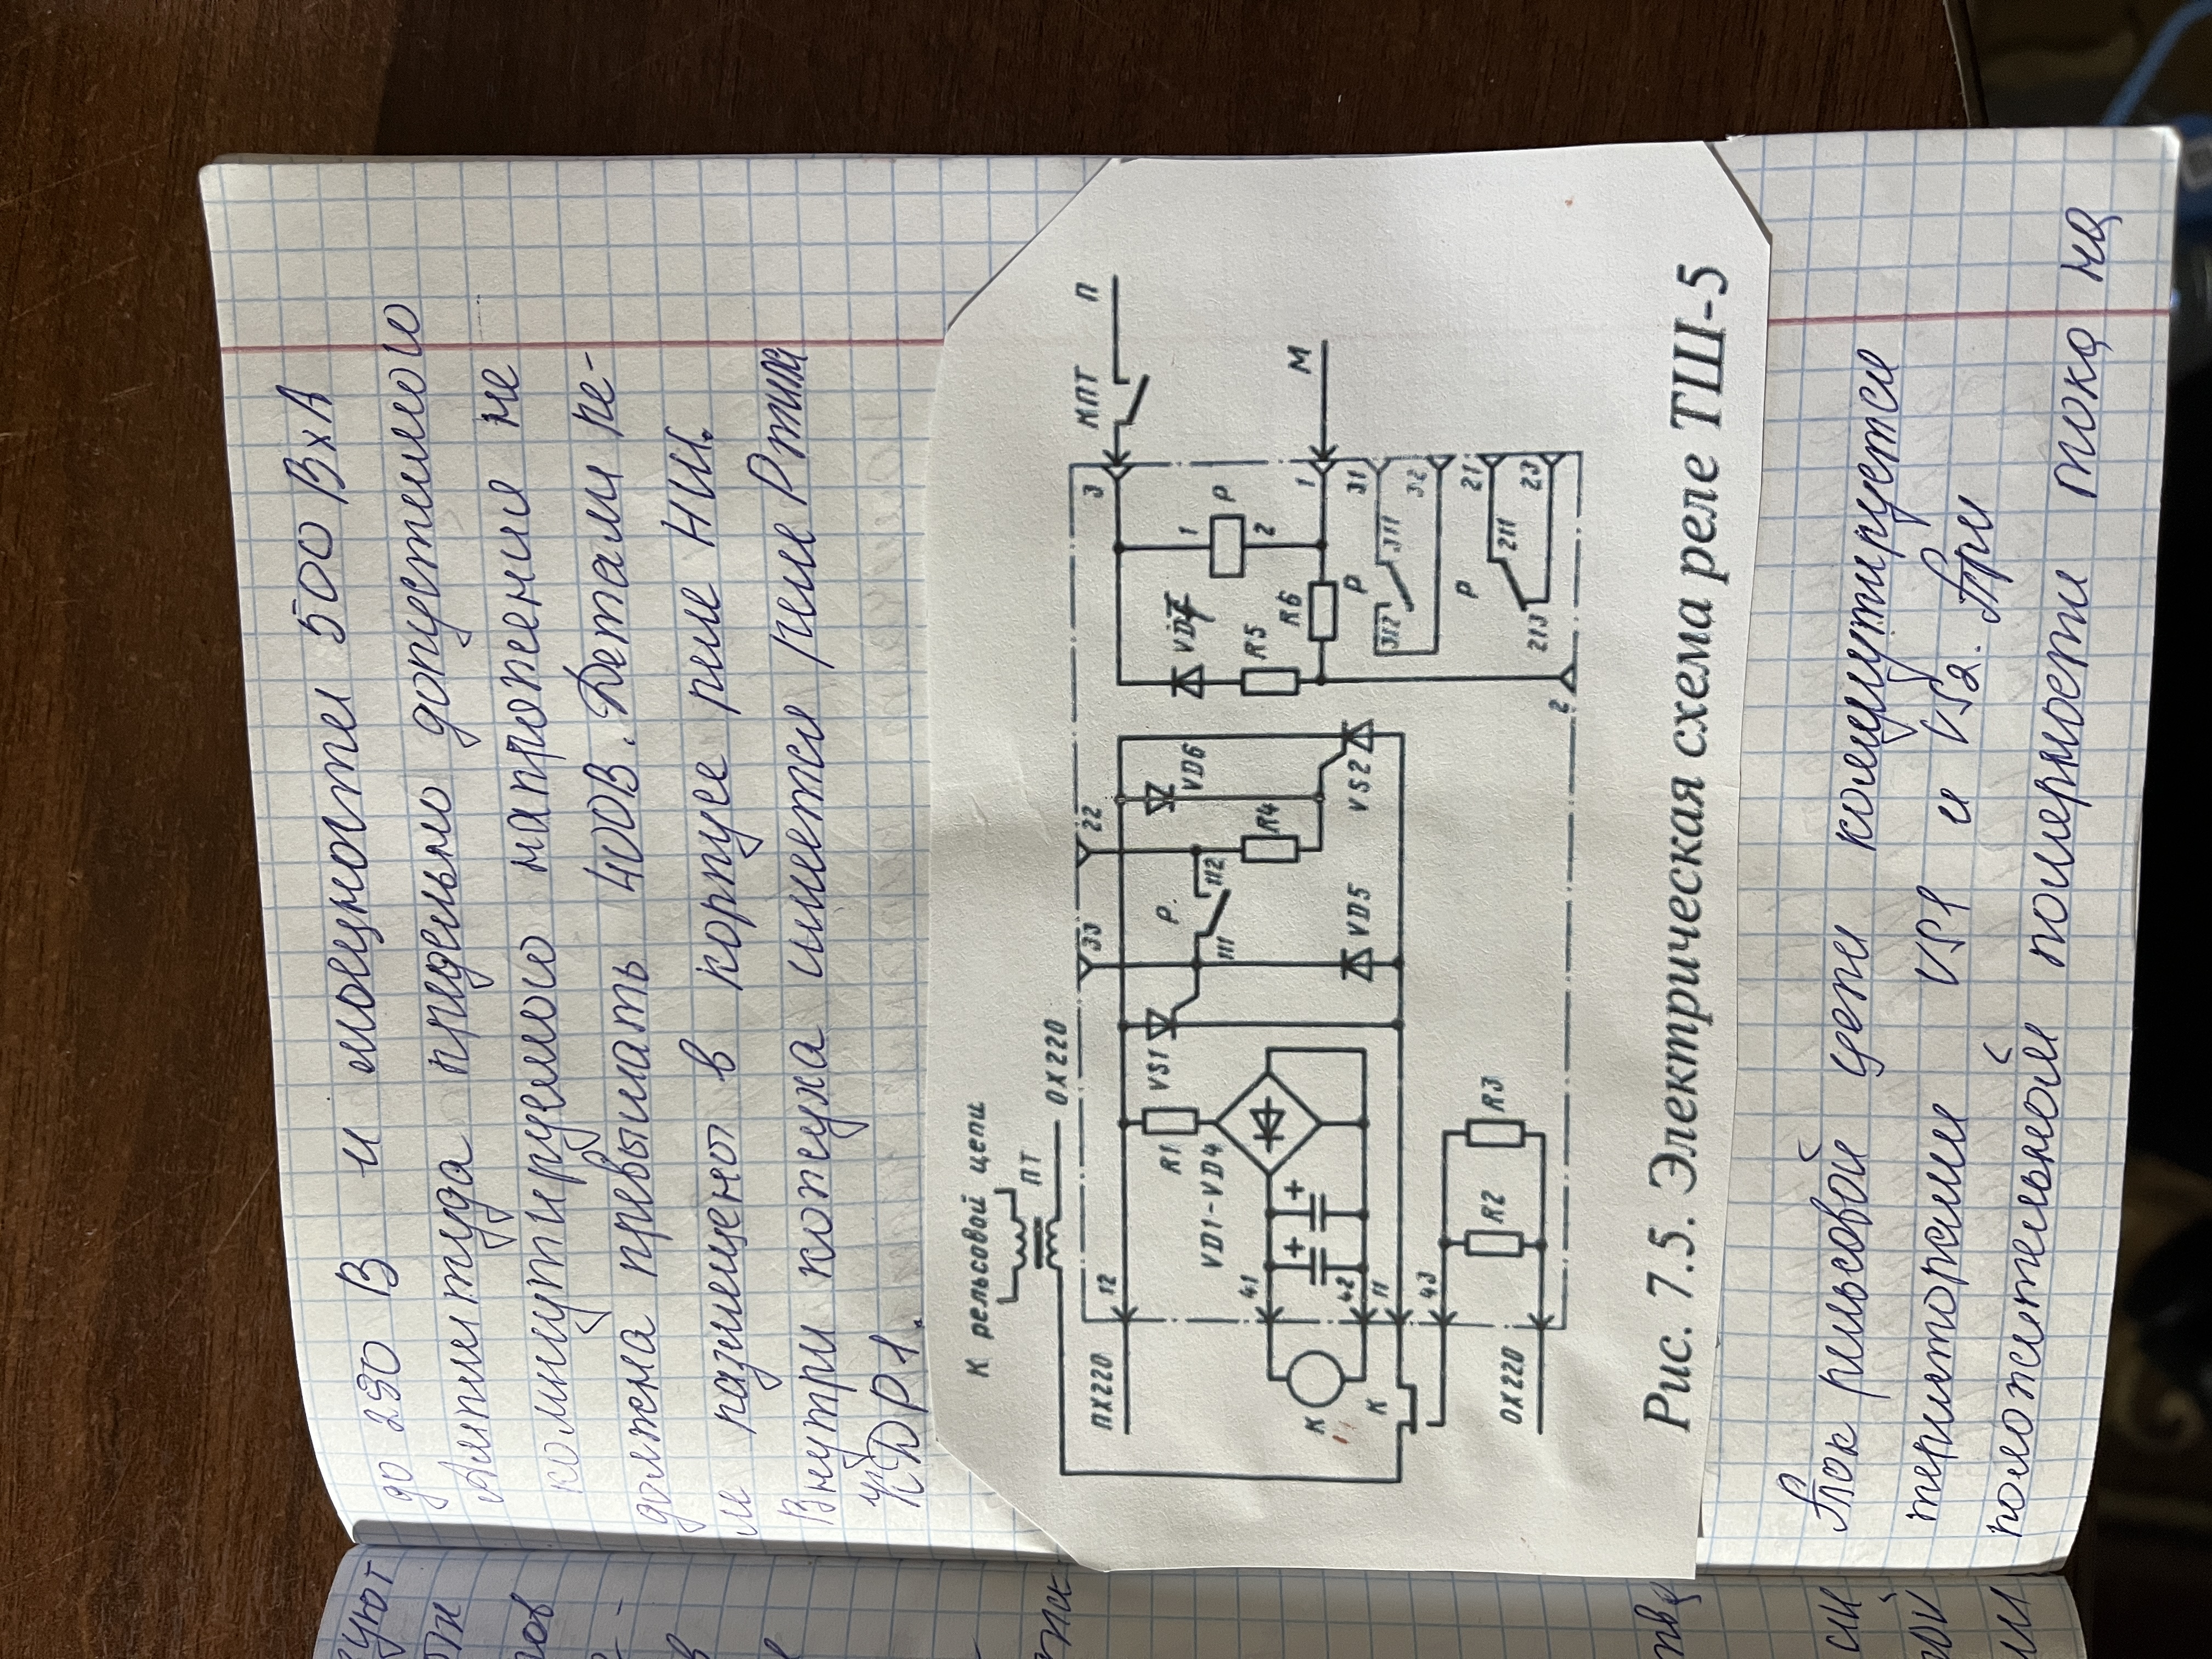 до 250 В и мощности 500 ВхА
Амплитуда предельно допустимого
коммутируемого напряжения не
должна превышать 400В. Детали ре-
ле размещены в корпусе реле НШ.
Внутри кожуха имеется реле Р типа
КДР1.
К рельсовой цепи
ПТ
ОХ220
ПХ220
12
R1
VS1
VD1-VD4
33
22
P
111
112
R4
VD6
VS2
VD5
41
42
11
43
+
+
К
К
R2
R3
ОХ220
3
МПТ
П
VD7
1
P
2
R5
R6
1
М
P
312
311
31
32
P
213
211
21
23
2
Рис. 7.5. Электрическая схема реле ТШ-5
Ток рельсовой цепи коммутируется
тиристорами VS1 и VS2. При
положительной полярности тока на